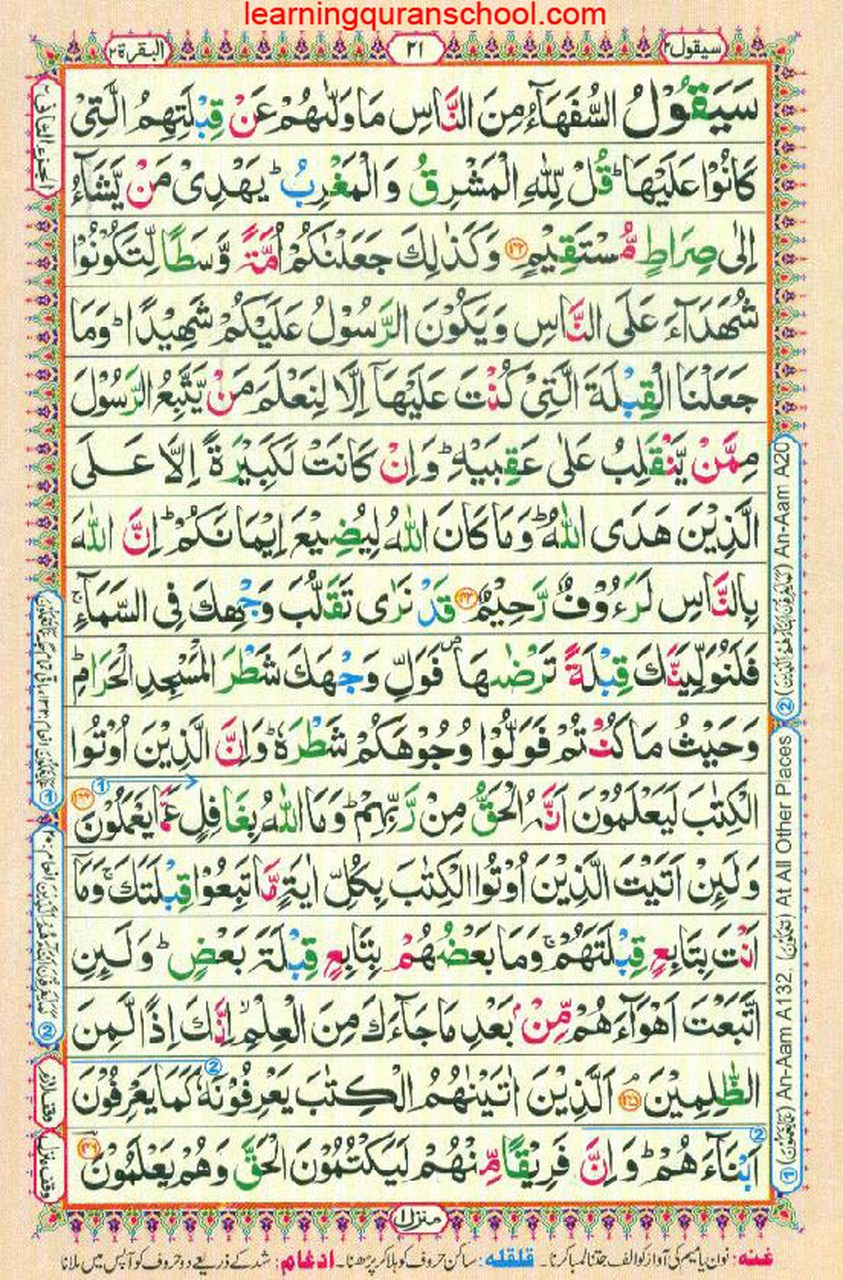 learningquranschool.com
سيقول ٢
٢١
البقرة ٢
سَيَقُوْلُ السُّفَهَآءُ مِنَ النَّاسِ مَا وَلّٰىهُمْ عَنْ قِبْلَتِهِمُ الَّتِیْ
كَانُوْا عَلَيْهَا ؕ قُلْ لِّلّٰهِ الْمَشْرِقُ وَ الْمَغْرِبُ ؕ يَهْدِیْ مَنْ يَّشَآءُ
اِلٰى صِرَاطٍ مُّسْتَقِيْمٍ ﴿١٤٢﴾ وَكَذٰلِكَ جَعَلْنٰكُمْ اُمَّةً وَّسَطًا لِّتَكُوْنُوْا
شُهَدَآءَ عَلَى النَّاسِ وَيَكُوْنَ الرَّسُوْلُ عَلَيْكُمْ شَهِيْدًا ؕ وَمَا
جَعَلْنَا الْقِبْلَةَ الَّتِیْ كُنْتَ عَلَيْهَآ اِلَّا لِنَعْلَمَ مَنْ يَّتَّبِعُ الرَّسُوْلَ
مِمَّنْ يَّنْقَلِبُ عَلٰى عَقِبَيْهِ ؕ وَاِنْ كَانَتْ لَكَبِيْرَةً اِلَّا عَلَى
الَّذِيْنَ هَدَى اللّٰهُ ؕ وَمَا كَانَ اللّٰهُ لِيُضِيْعَ اِيْمَانَكُمْ ؕ اِنَّ اللّٰهَ
بِالنَّاسِ لَرَءُوْفٌ رَّحِيْمٌ ﴿١٤٣﴾ قَدْ نَرٰى تَقَلُّبَ وَجْهِكَ فِی السَّمَآءِ ۚ
فَلَنُوَلِّيَنَّكَ قِبْلَةً تَرْضٰىهَا ۪ فَوَلِّ وَجْهَكَ شَطْرَ الْمَسْجِدِ الْحَرَامِ ؕ
وَحَيْثُ مَا كُنْتُمْ فَوَلُّوْا وُجُوْهَكُمْ شَطْرَهٗ ؕ وَاِنَّ الَّذِيْنَ اُوْتُوا
الْكِتٰبَ لَيَعْلَمُوْنَ اَنَّهُ الْحَقُّ مِنْ رَّبِّهِمْ ؕ وَمَا اللّٰهُ بِغَافِلٍ عَمَّا يَعْمَلُوْنَ ﴿١٤٤﴾
وَلَىِٕنْ اَتَيْتَ الَّذِيْنَ اُوْتُوا الْكِتٰبَ بِكُلِّ اٰيَةٍ مَّا تَبِعُوْا قِبْلَتَكَ ۚ وَمَآ
اَنْتَ بِتَابِعٍ قِبْلَتَهُمْ ۚ وَمَا بَعْضُهُمْ بِتَابِعٍ قِبْلَةَ بَعْضٍ ؕ وَلَىِٕنِ
اتَّبَعْتَ اَهْوَآءَهُمْ مِّنْۢ بَعْدِ مَا جَآءَكَ مِنَ الْعِلْمِ ۙ اِنَّكَ اِذًا لَّمِنَ
الظّٰلِمِيْنَ ﴿١٤٥﴾ اَلَّذِيْنَ اٰتَيْنٰهُمُ الْكِتٰبَ يَعْرِفُوْنَهٗ كَمَا يَعْرِفُوْنَ
اَبْنَآءَهُمْ ؕ وَاِنَّ فَرِيْقًا مِّنْهُمْ لَيَكْتُمُوْنَ الْحَقَّ وَهُمْ يَعْلَمُوْنَ ﴿١٤٦﴾
منزل ١
غنه: نون یا میم کی آواز کو الف جتنا لمبا کرنا۔ قلقله: ساکن حروف کو ہلا کر پڑھنا۔ ادغام: شد کے ذریعے دو حروف کو آپس میں ملانا
الجزء الثانی ٢
An-Aam A20
An-Aam A132.
At All Other Places